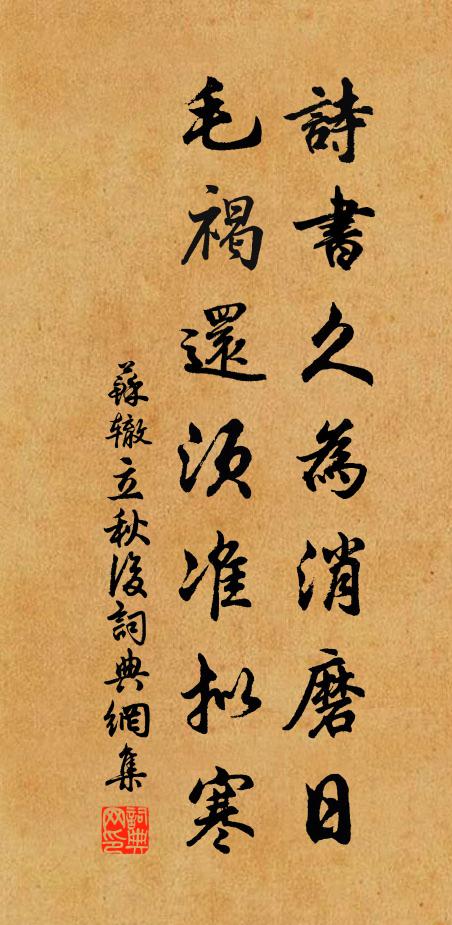 詩書久為消磨日
毛褐還須准拟寒
蘇辙立秋後詞典網集
詞典网印